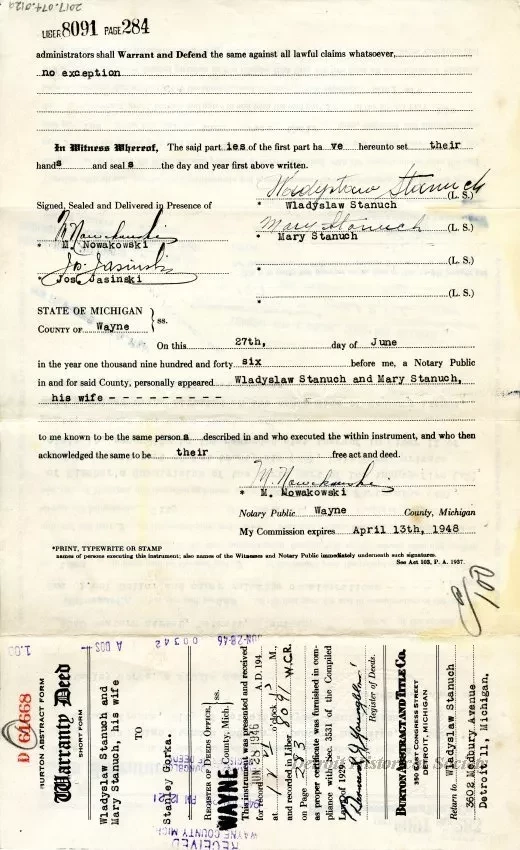 2017.074.012a
LIBER 8091 PAGE 284
administrators shall Warrant and Defend the same against all lawful claims whatsoever,
no exception
In Witness Whereof, The said parties of the first part have hereunto set their
hands and seals the day and year first above written.
Signed, Sealed and Delivered in Presence of
Wladyslaw Stanuch (L. S.)
* Wladyslaw Stanuch
M. Nowakowski
* M. Nowakowski
Mary Stanuch (L. S.)
* Mary Stanuch
Jos Jasinski
* Jos. Jasinski
(L. S.)
*
(L. S.)
*
STATE OF MICHIGAN
COUNTY OF Wayne } ss.
On this 27th, day of June
in the year one thousand nine hundred and forty six before me, a Notary Public
in and for said County, personally appeared Wladyslaw Stanuch and Mary Stanuch,
his wife - - - - - - - - -
to me known to be the same persons described in and who executed the within instrument, and who then
acknowledged the same to be their free act and deed.
M. Nowakowski
* M. Nowakowski
Notary Public Wayne County, Michigan
My Commission expires April 13th, 1948
*PRINT, TYPEWRITE OR STAMP
names of persons executing this instrument; also names of the Witnesses and Notary Public immediately underneath such signatures.
See Act 103, P. A. 1937.
100
D 64668
BURTON ABSTRACT FORM
Warranty Deed
SHORT FORM
Wladyslaw Stanuch and
Mary Stanuch, his wife
TO
Stanley Gorka.
REGISTER OF DEEDS OFFICE, } ss.
WAYNE County, Mich.
This instrument was presented and received
for record JUN 28 1946 A. D. 194
at 12 o'clock M.,
and recorded in Liber 8091 W.C.R.
on Page 283
as proper certificate was furnished in com-
pliance with Sec. 3531 of the Compiled
Laws of 1929.
Register of Deeds.
BURTON ABSTRACT AND TITLE CO.
350 EAST CONGRESS STREET
DETROIT, MICHIGAN
Return to Wladyslaw Stanuch
3602 Medbury Avenue
Detroit 11, Michigan.
JUN-28-46 00342 A DUS 1.00
RECEIVED
WAYNE COUNTY MICH
Detroit Historical Society